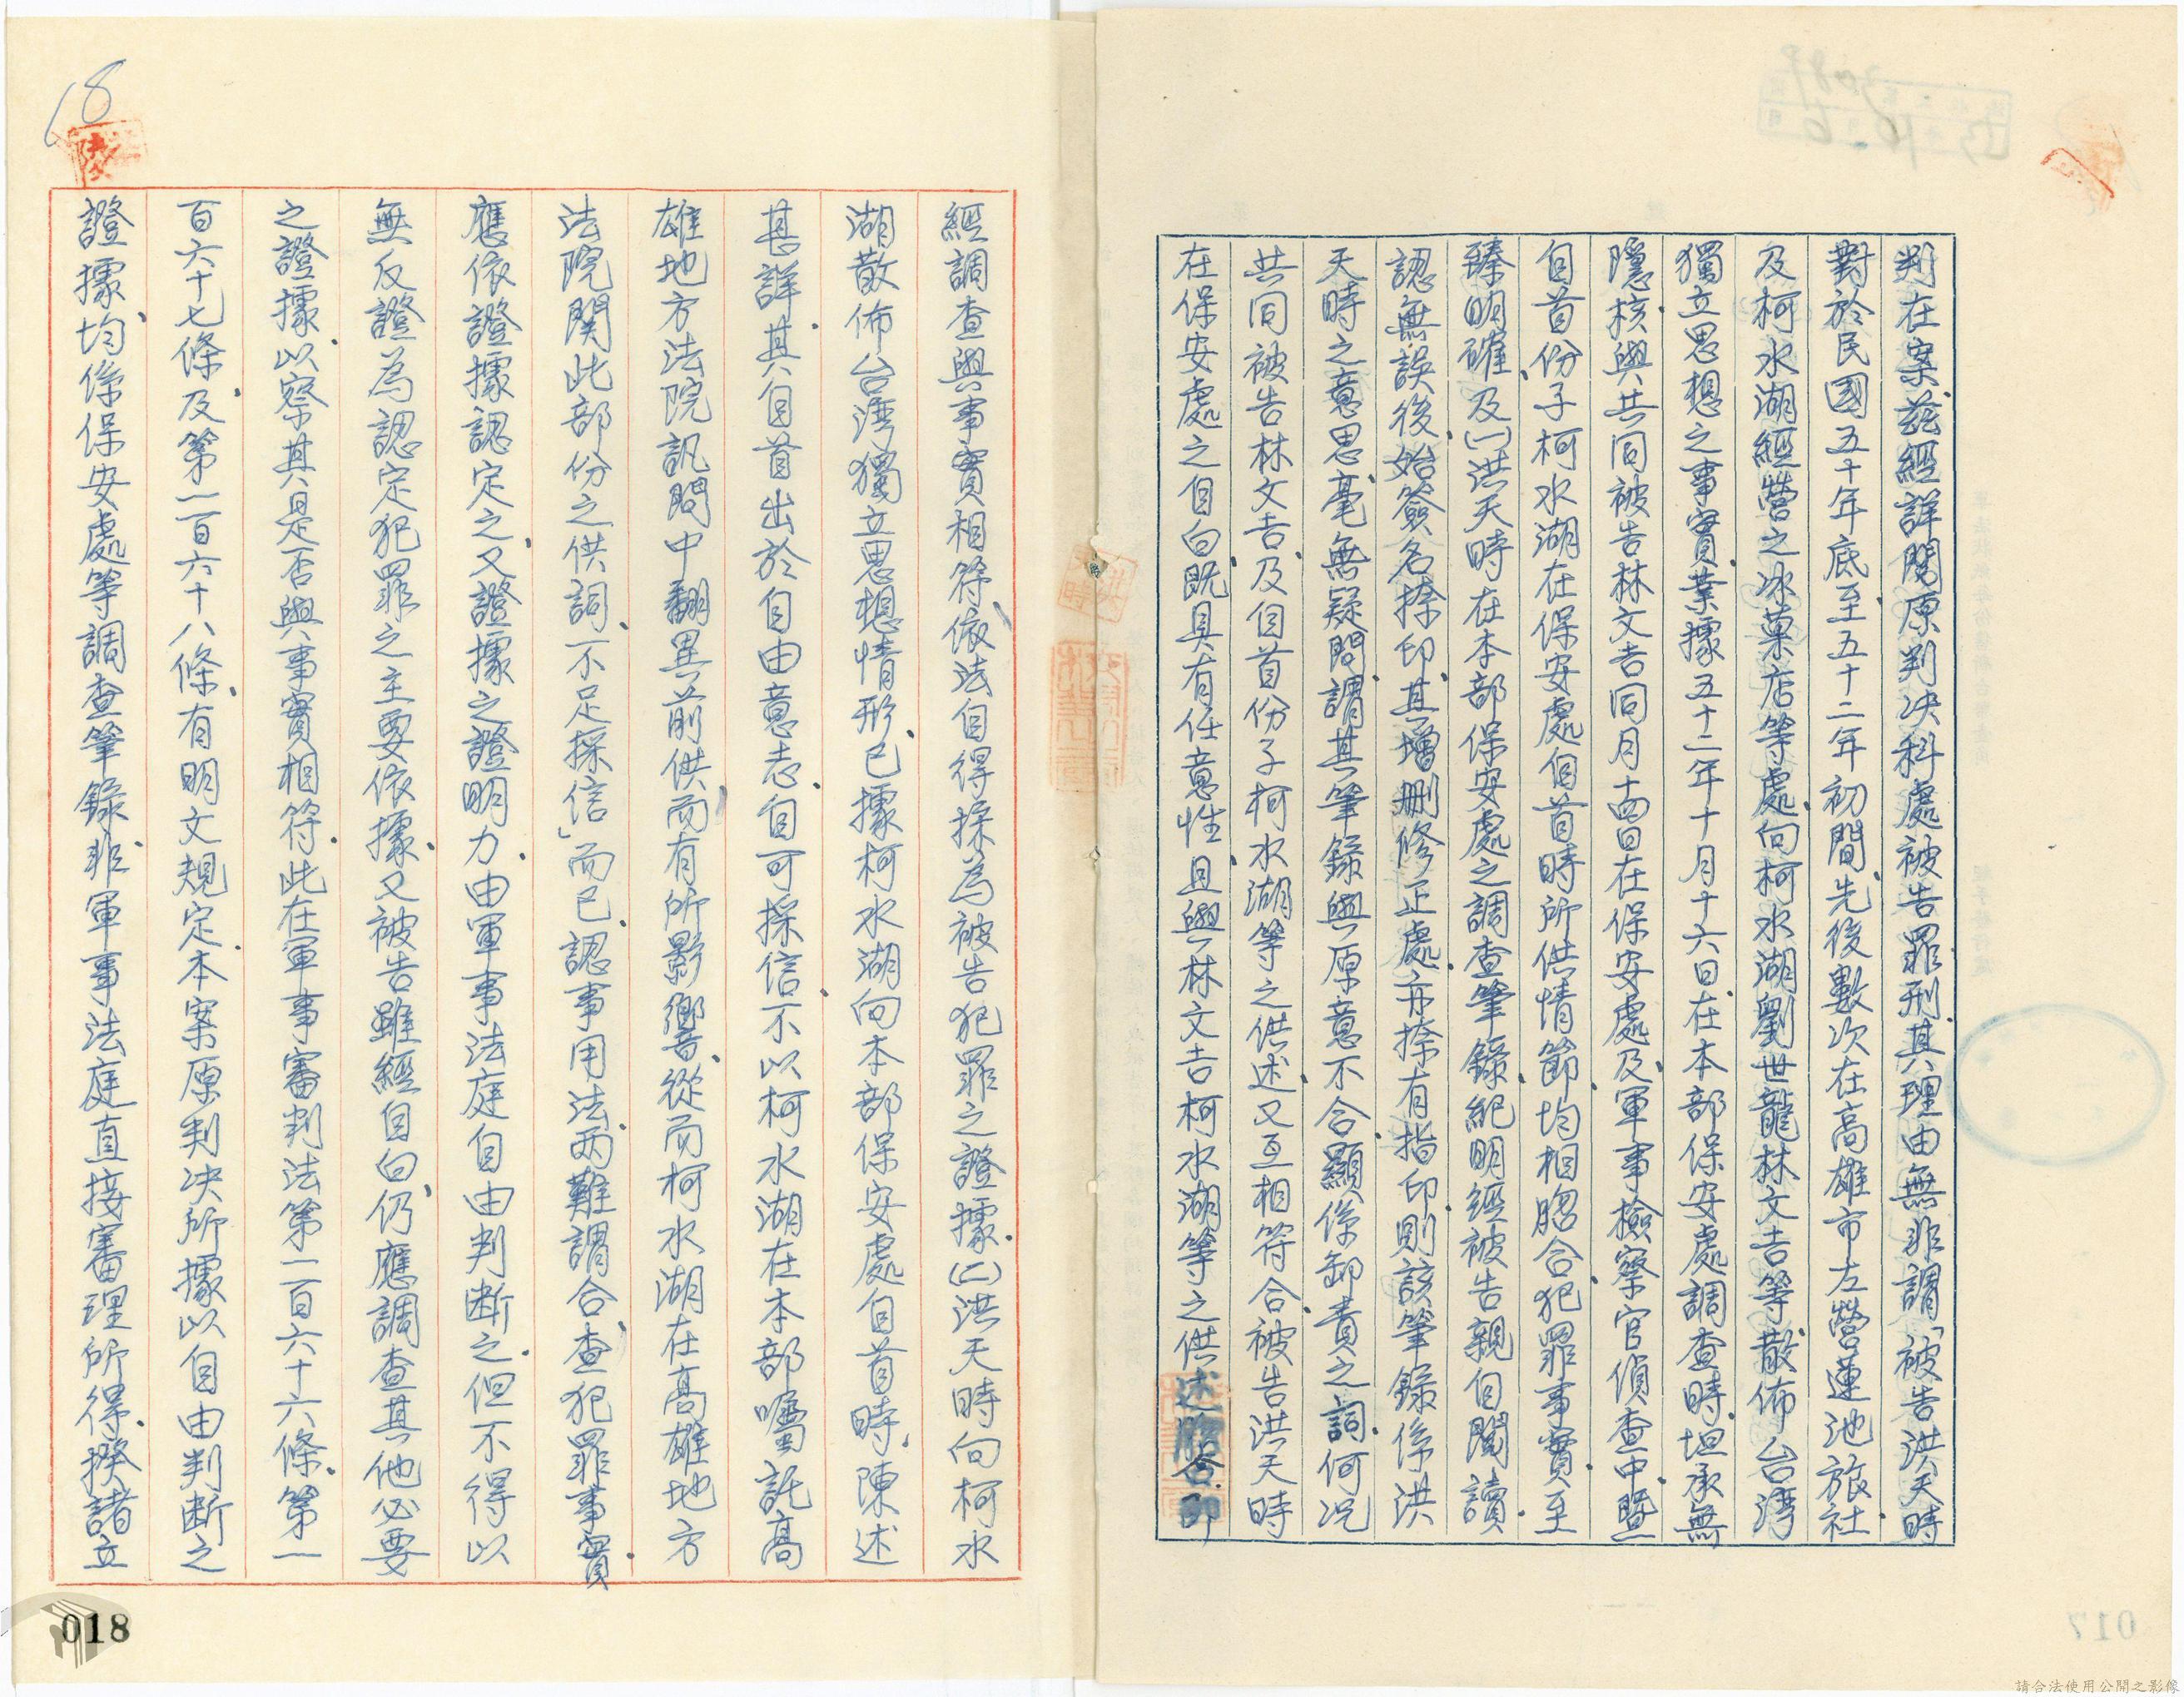 判在案、茲經詳閱原判決科處被告罪刑、其理由無非謂「被告洪天時
對於民國五十年底至五十二年初間、先後數次在高雄市左營蓮池旅社、
及柯水湖經營之冰菓店等處、向柯水湖劉世龍林文吉等、散佈台灣
獨立思想之事實、業據五十二年十月十六日、在本部保安處調查時、坦承無
隱、核與共同被告林文吉同月十四日在保安處及軍事檢察官偵查中、暨
自首份子柯水湖在保安處自首時所供情節、均相脗合、犯罪事實、至
臻明確、及(一)洪天時在本部保安處之調查筆錄、紀明經被告親自閱讀、
認無誤後、始簽名捺印、其增刪修正處、亦捺有指印、則該筆錄係洪
天時之意思、毫無疑問、謂其筆錄與原意不合、顯係卸責之詞、何況
共同被告林文吉、及自首份子柯水湖等之供述、又互相符合、被告洪天時
在保安處之自白、既具有任意性、且與林文吉柯水湖等之供述脗合、即
經調查與事實相符、依法自得採為被告犯罪之證據、(二)洪天時向柯水
湖散佈台灣獨立思想情形、已據柯水湖向本部保安處自首時、陳述
甚詳、其自首出於自由意志、自可採信、不以柯水湖在本部囑託高
雄地方法院訊問中翻異前供而有所影響、從而柯水湖在高雄地方
法院關此部份之供詞、不足採信」而已、認事用法、兩難謂合、查犯罪事實、
應依證據認定之、又證據之證明力、由軍事法庭自由判斷之、但不得以
無反證為認定犯罪之主要依據、又被告雖經自白、仍應調查其他必要
之證據、以察其是否與事實相符、此在軍事審判法第一百六十六條、第一
百六十七條、及第一百六十八條、有明文規定、本案原判決所據以自由判斷之
證據、均係保安處等調查筆錄、非軍事法庭直接審理所得、揆諸立
18
018
請合法使用公開之影像